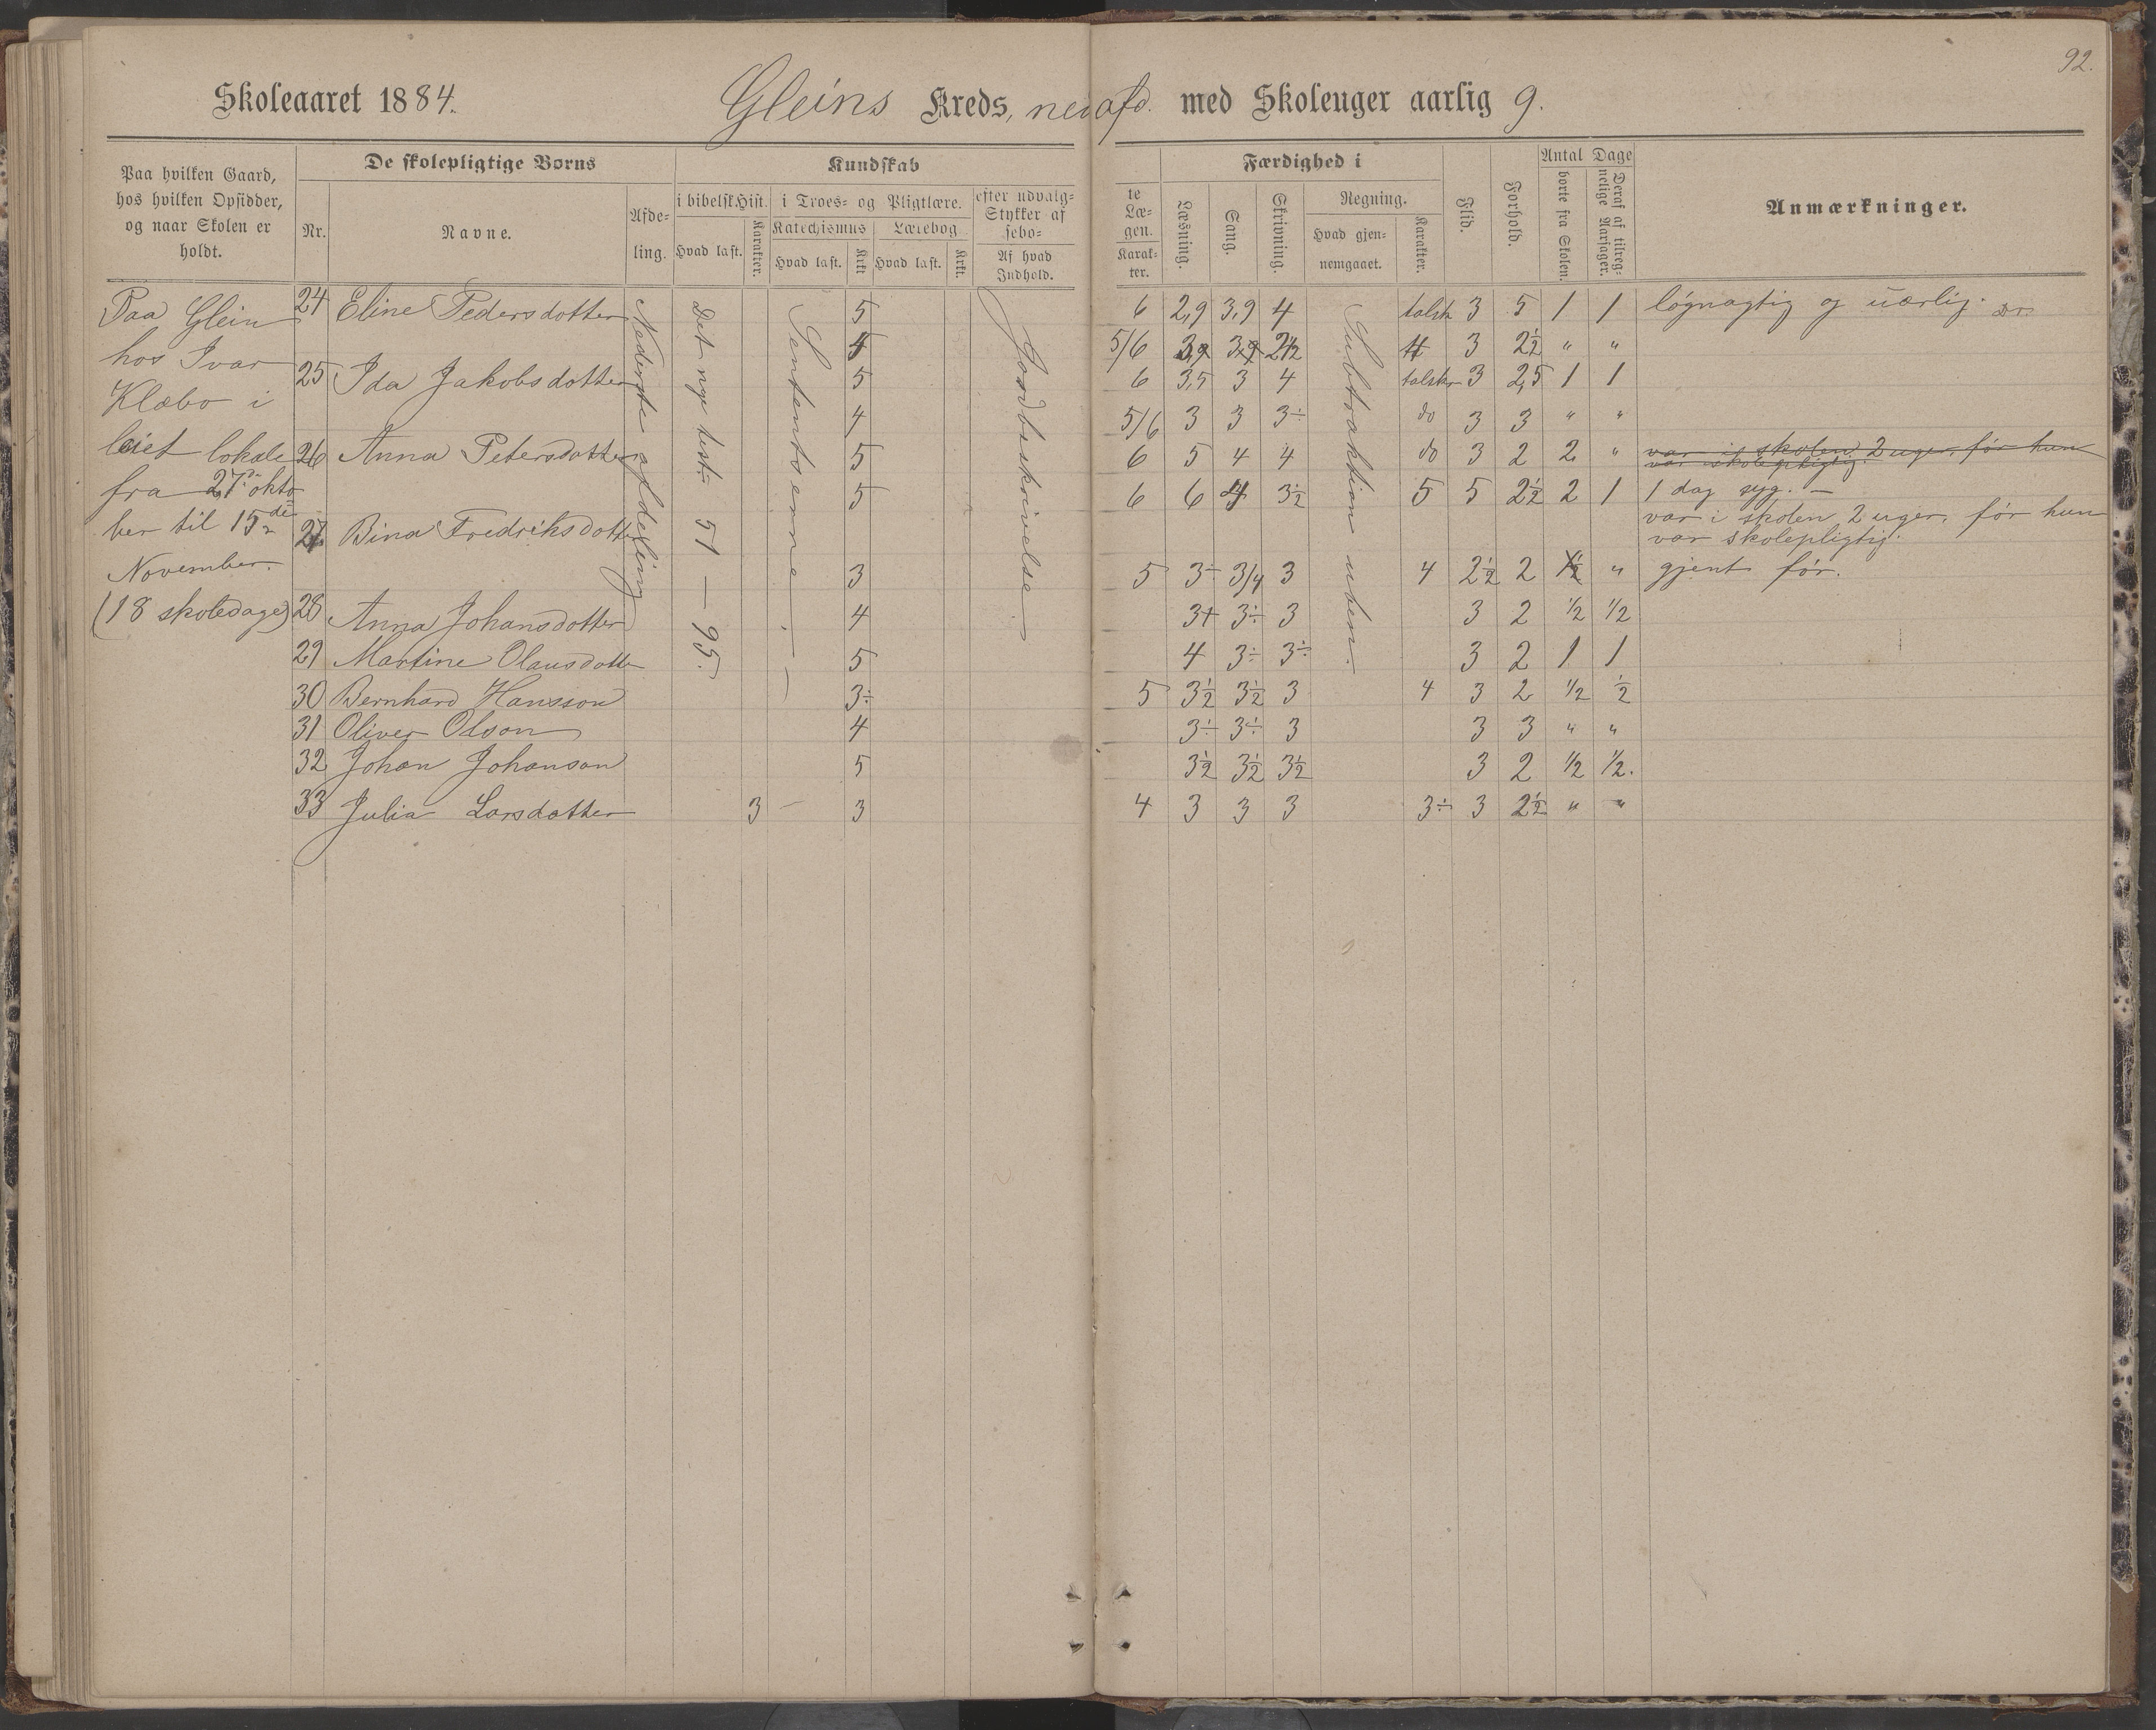 92.
Skoleaaret 1884. Gleins Kreds, ned afd. med Skoleuger aarlig 9.
Paa hvilken Gaard,
hos hvilken Opsidder,
og naar Skolen er
holdt.
De skolepligtige Børns
Nr. Navne. Afde-
ling.
Kundskab
i bibelsk Hist.
Hvad læst. Karakter.
i Troes- og Pligtlære.
Katechismus Lærebog
Hvad læst. Krkt. Hvad læst. Krkt.
efter udvalg-
Stykker af
sebo-
Af hvad
Indhold.
te
Læ-
gen.
Karak-
ter.
Færdighed i
Læsning. Sang. Skrivning. Regning.
Hvad gjen-
nemgaaet. Karakter.
Flid. Forhold.
Antal Dage
borte fra Skolen. Deraf af tilreg-
nelige Aarsager.
Anmærkninger.
Paa Glein
hos Ivar
Klæbo i
leiet lokale
fra 27 okto
ber til 15de
November.
(18 skoledage)
Nederste afdeling
Det nye test. 51 — 95.
Jordbeskrivelse.
Subtraktion uben.
24 Eline Pedersdotter 5 6 2,9 3,9 4 talstr 3 5 1 1 løgnagtig og uærlig.
5/6 3 2½ " "
25 Ida Jakobsdotter 5 6 3,5 3 4 talstr 3 2,5 1 1
4 5/6 3 3 3÷ do 3 3 " "
26 Anna Petersdotter 5 6 5 4 4 do 3 2 2 " var i skolen 2 uger, før hun
var skolepligtig.
5 6 6 4 3½ 5 5 2½ 2 1 1 dag syg. —
27. Bina Fredriksdotter var i skolen 2 uger, før hun
var skolepligtig.
3 5 3÷ 3/4 3 4 2½ 2 " gjent før.
28 Anna Johansdotter 4 3+ 3÷ 3 3 2 ½ ½
29 Martine Olausdotter 5 4 3÷ 3÷ 3 2 1 1
30 Bernhard Hansson 3÷ 5 3½ 3½ 3 4 3 2 ½ ½
31 Oliver Olson 4 3÷ 3÷ 3 3 3 " "
32 Johan Johanson 5 3½ 3½ 3½ 3 2 ½ ½.
33 Julia Larsdotter 3 – 3 4 3 3 3 3÷ 3 2½ " "